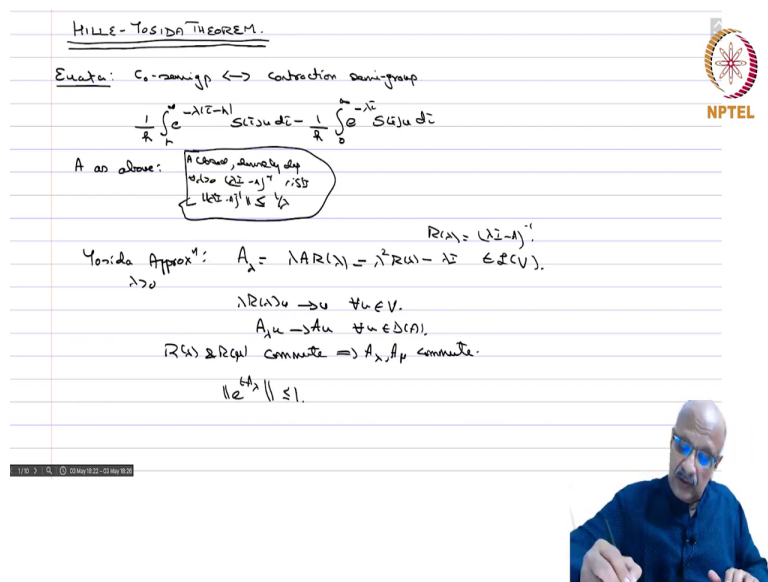 HILLE-YOSIDA THEOREM.
Errata: C₀-semigp ↔ contraction semi-group
1/h ∫_h^∞ e^{-λ(τ-h)} S(τ)u dτ - 1/h ∫_0^∞ e^{-λτ} S(τ)u dτ
A as above: A closed, densely def
∀λ>0 (λI-A)^{-1} exists
‖(λI-A)^{-1}‖ ≤ 1/λ
R(λ) = (λI-A)^{-1}.
Yosida Approxⁿ: A_λ = λAR(λ) = λ²R(λ) - λI ∈ L(V).
λ>0
λR(λ)u → u ∀u∈V.
A_λu → Au ∀u∈D(A).
R(λ) & R(μ) commute ⇒ A_λ, A_μ commute.
‖e^{tA_λ}‖ ≤ 1.
NPTEL
1/10 03 May 18:22 – 03 May 18:26